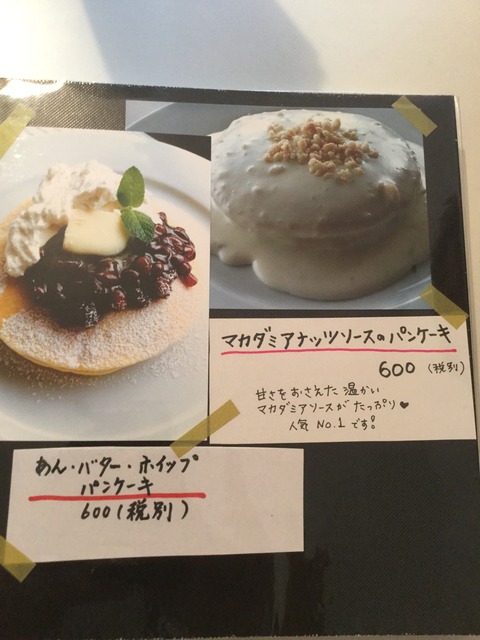 マカダミアナッツソースのパンケーキ
600 (税別)
甘さをおさえた温かい
マカダミアソースがたっぷり♥
人気No.1です!
あん・バター・ホイップ
パンケーキ
600(税別)